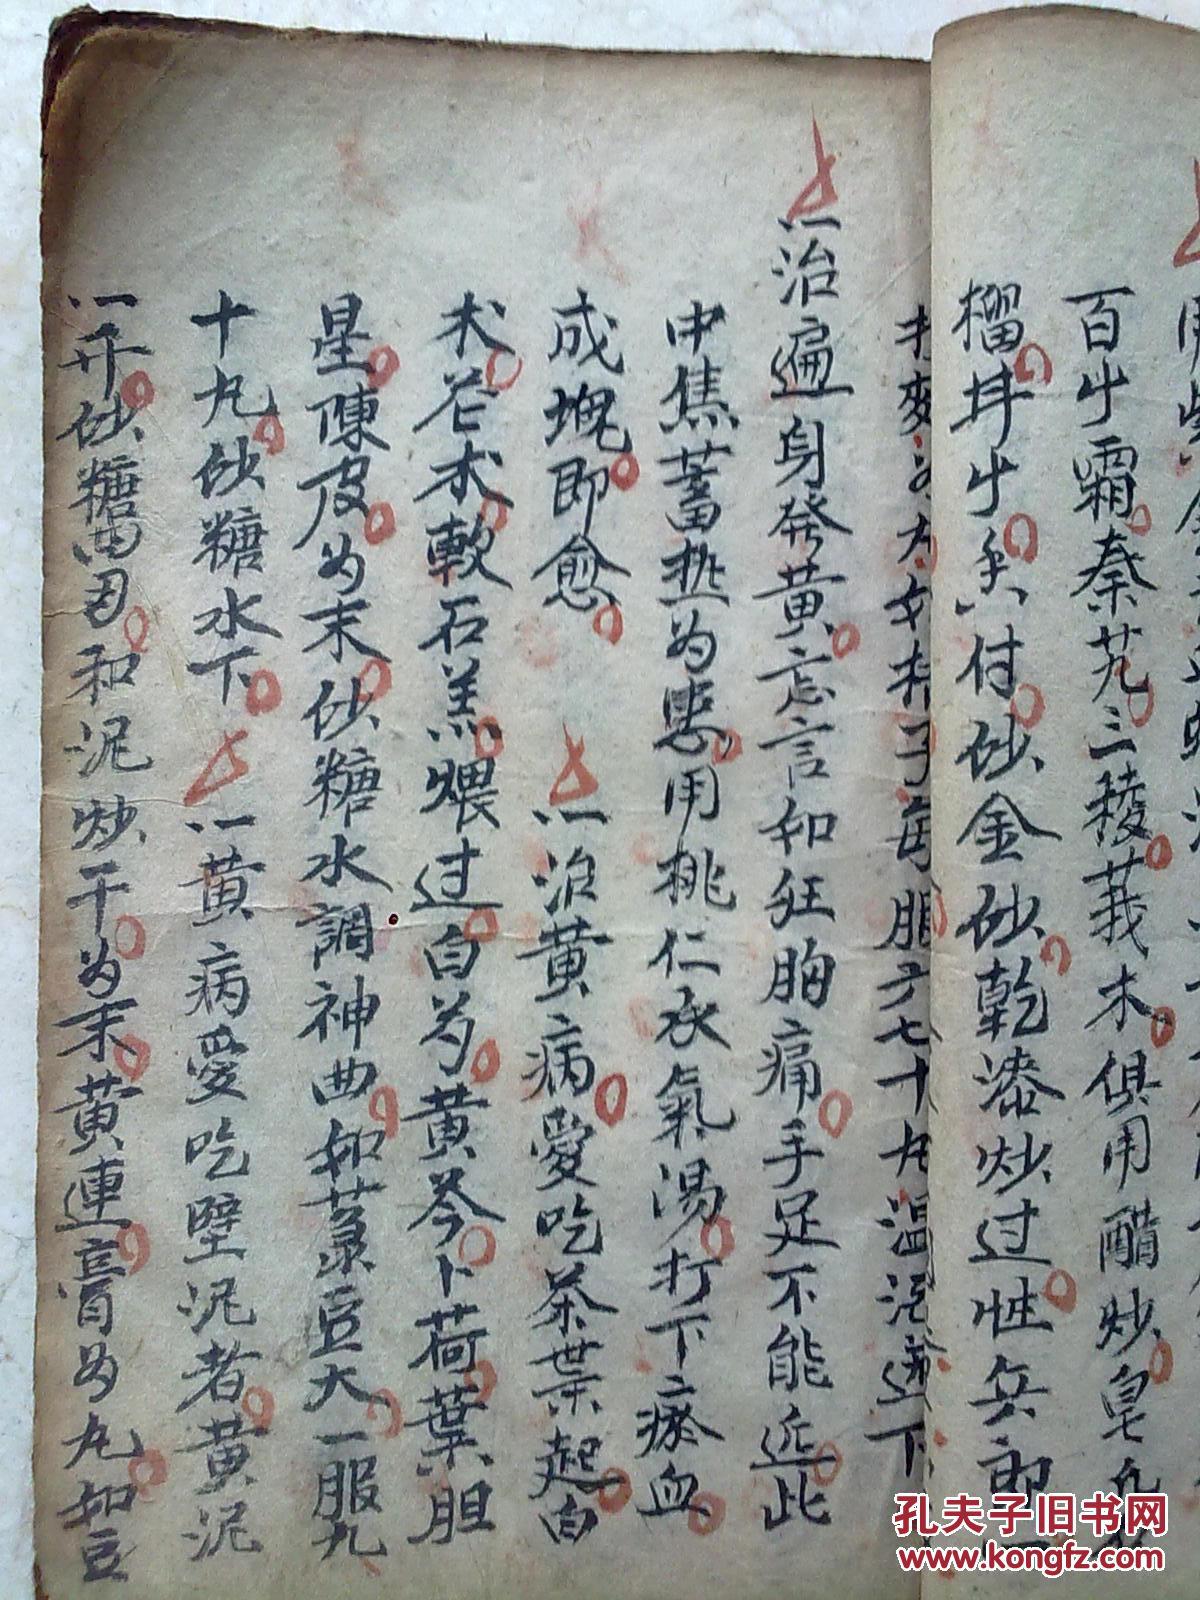 百艹霜秦艽三稜莪术俱用醋炒皂凡
榴丹艹付砂金砂乾漆炒过性兵郎一
每服六七十丸温酒送下
一治遍身發黄忘言如狂胸痛手足不能近此
中焦蓄热为患用桃仁承氣湯打下瘀血
成塊即愈
一治黄病愛吃茶葉起白
术苍术軟石羔煨过白芍黄芩卜荷葉胆
星陳皮为末砂糖水調神曲如菉豆大一服九
十丸砂糖水下
一黄病愛吃壁泥者黄泥
一斤砂糖和泥炒干为末黄連膏为丸如豆
孔夫子旧书网
www.kongfz.com